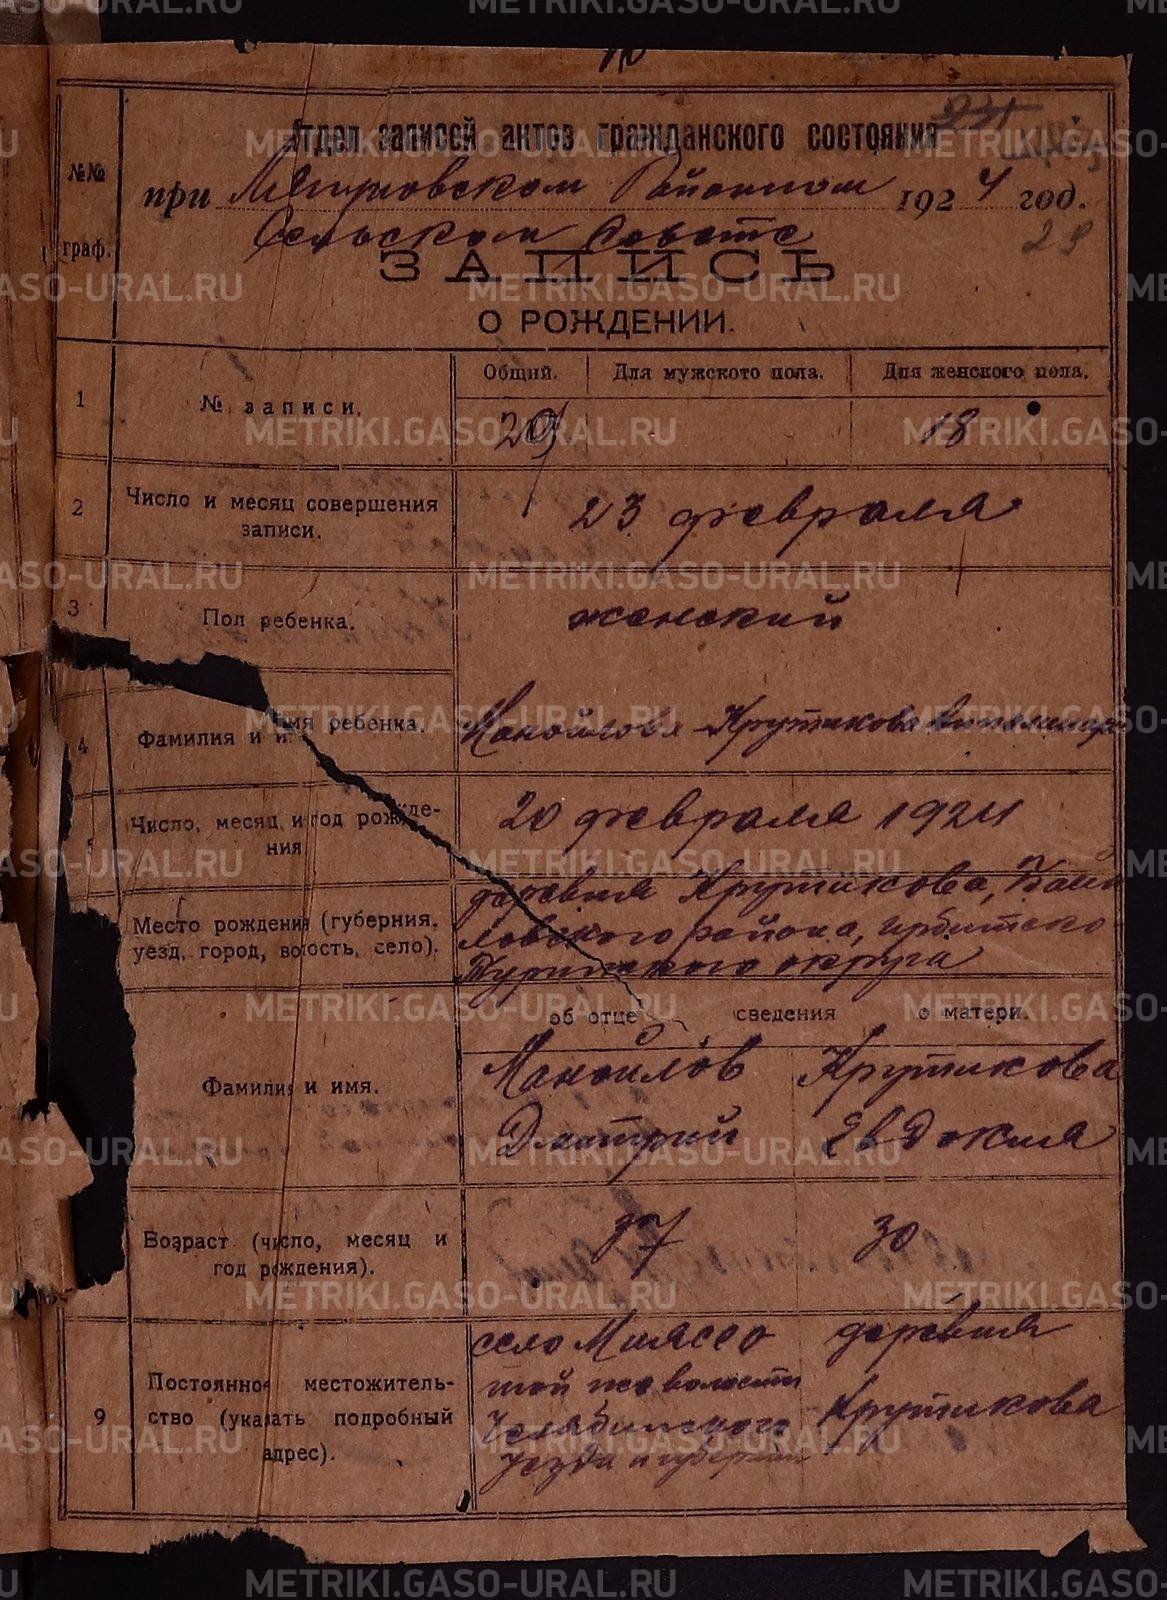 Отдел записей актов гражданского состояния
№№
граф.
при Ляпуновском Районном 1924 год.
Сельском Совете
29
ЗАПИСЬ
О РОЖДЕНИИ.
1
№ записи.
Общий. Для мужского пола. Для женского пола.
29 18
2
Число и месяц совершения
записи.
23 февраля
3
Пол ребенка.
женский
4
Фамилия и имя ребенка.
Манойлова-Крутикова
Число, месяц и год рожде-
ния
20 февраля 1924
Место рождения (губерния,
уезд, город, волость, село).
деревня Крутикова, Байка
ловского района, Ирбитско
Туринского округа
об отце сведения о матери.
Фамилия и имя.
Манойлов Крутикова
Дмитрий Евдокия
Возраст (число, месяц и
год рождения).
37 30
9
Постоянное местожитель-
ство (указать подробный
адрес).
село Миясео деревня
той же волости
Челябинского Крутикова
уезда и губернии
METRIKI.GASO-URAL.RU